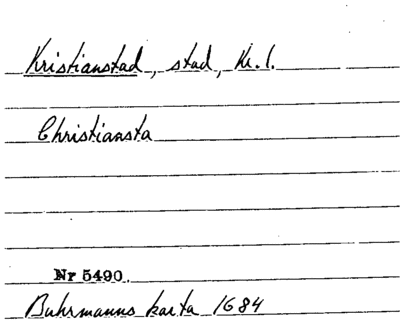 Kristianstad, stad, Kr. l.
Christiansta
Nr 5490.
Buhrmanns karta 1684